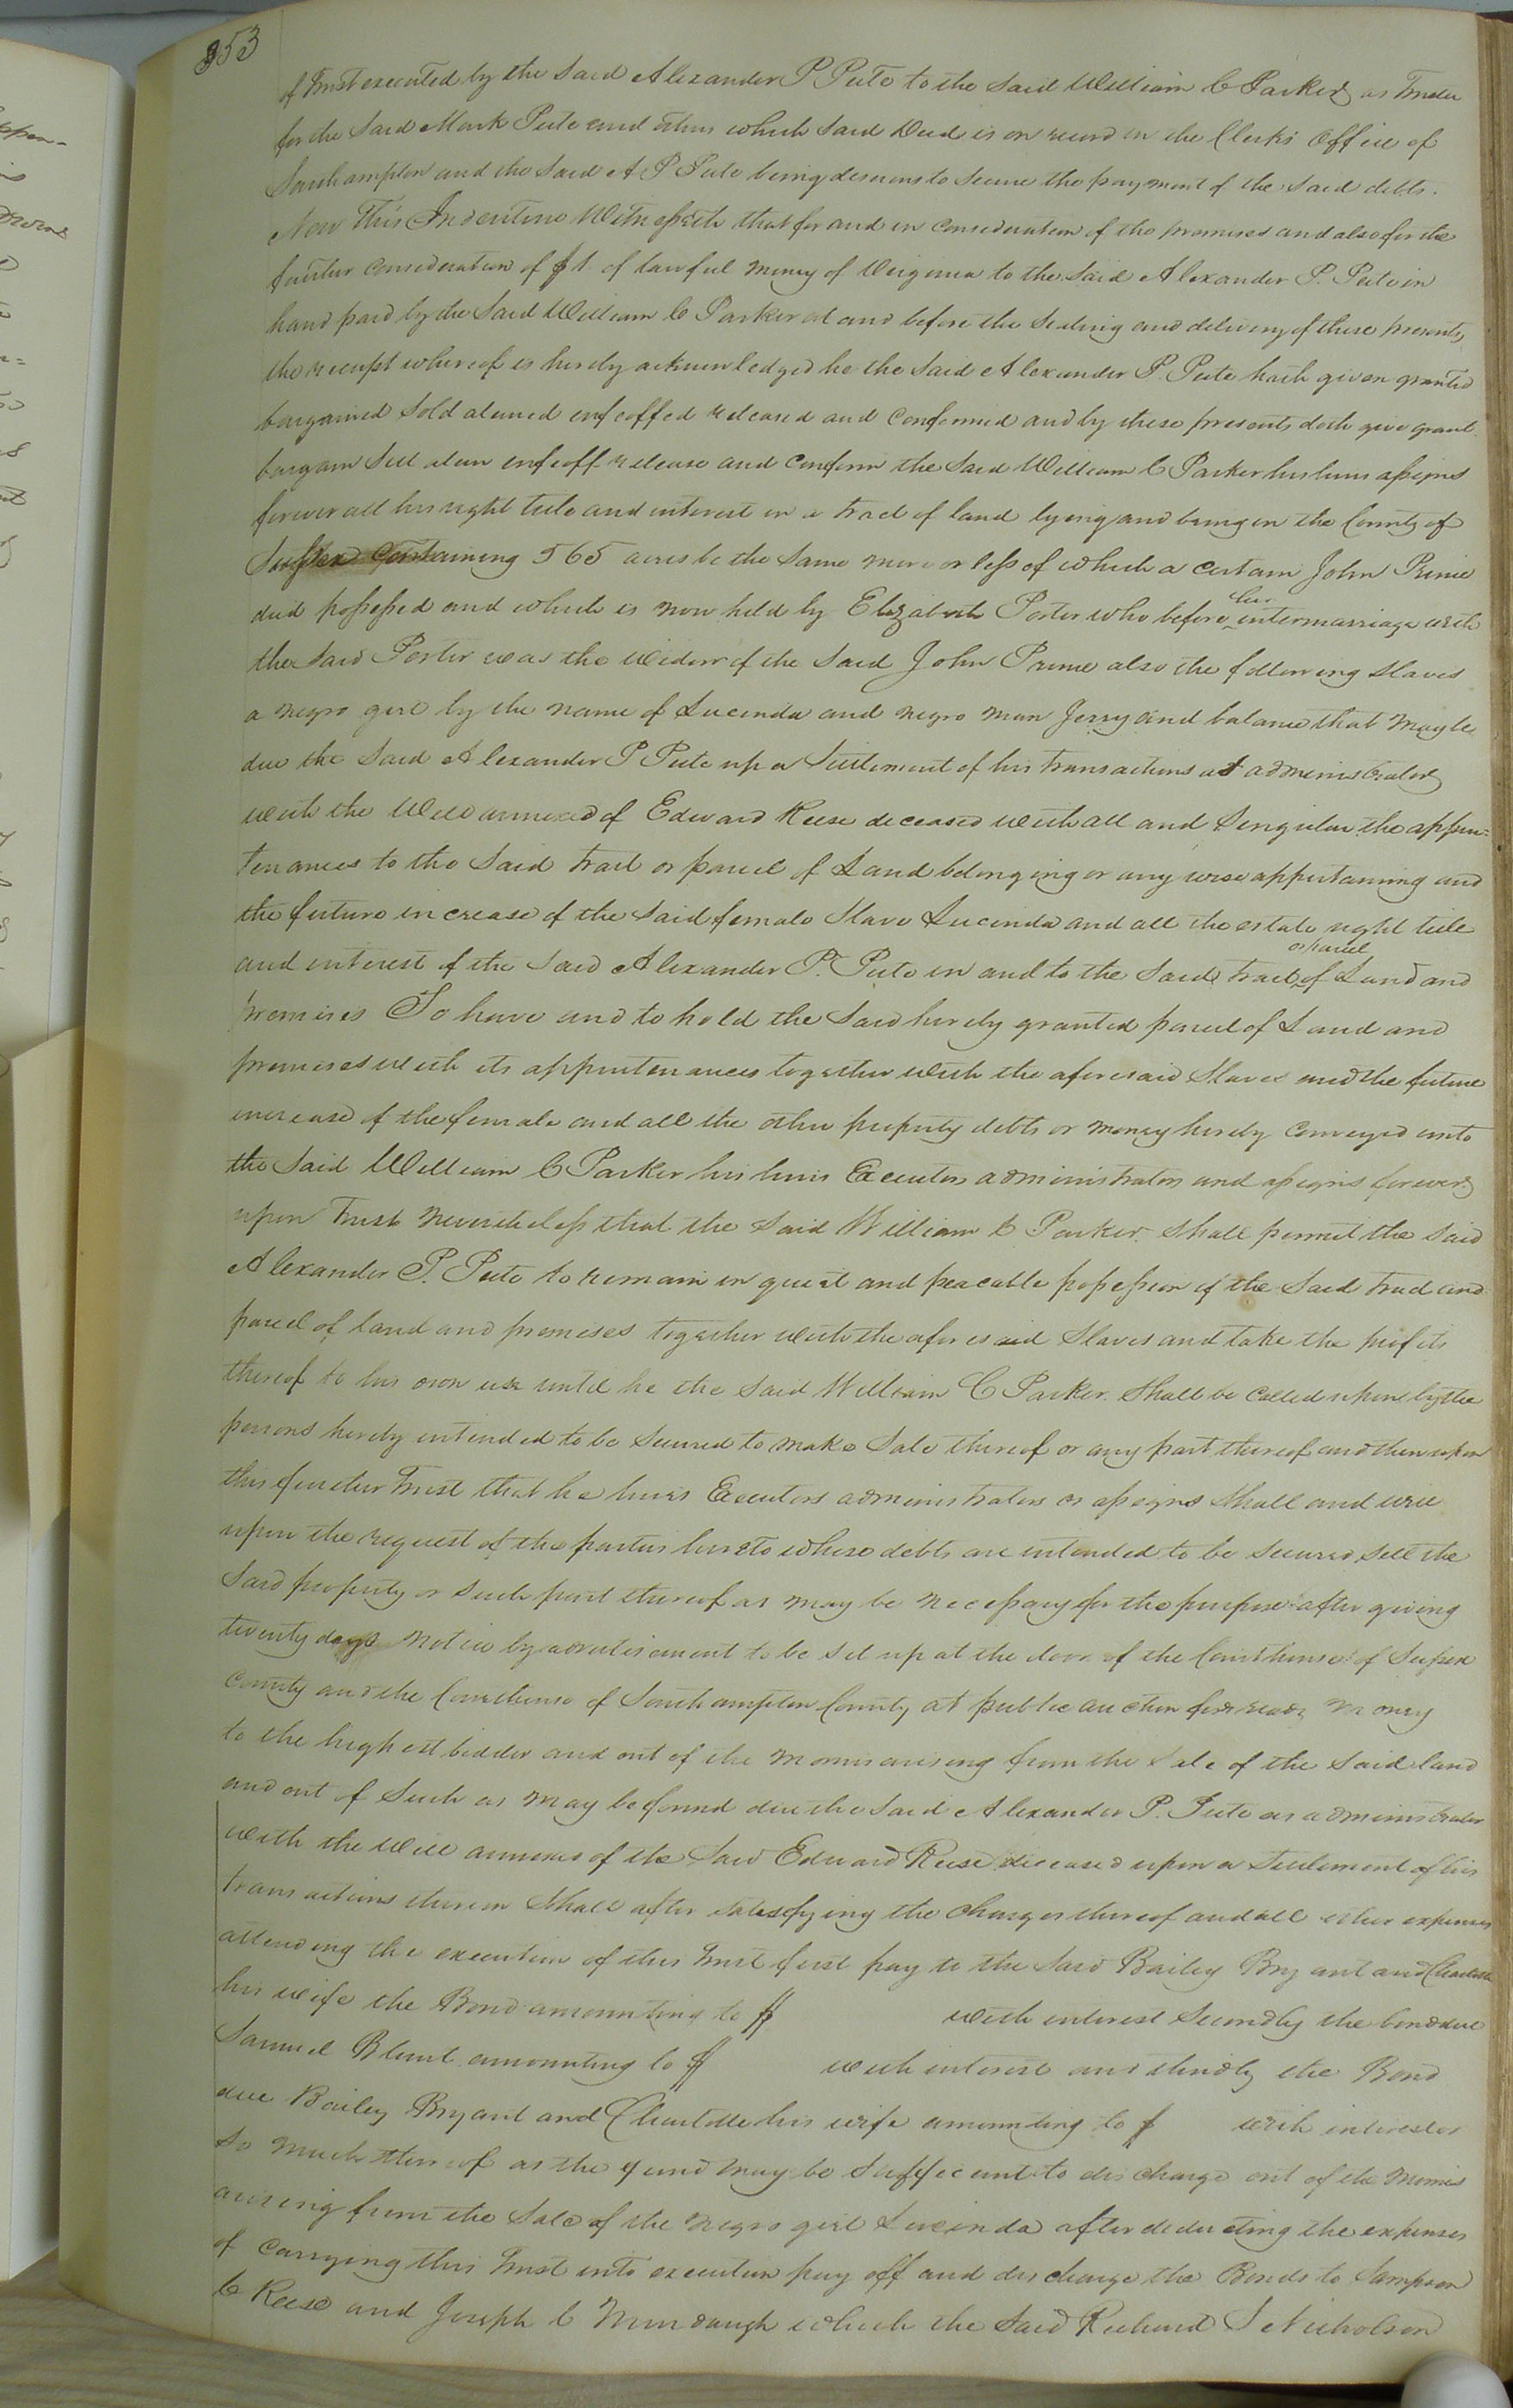 353
of trust executed by the said Alexander P Pete to the said William C Parker as Trustee
for the said Mark Pete and others which said Deed is on record in the Clerks Office of
Southampton and the said A P Pete being desirous to secure the payment of the said debts.
Now This Indenture Witnesseth that for and in consideration of the premises and also for the
further consideration of $1. of lawful money of Virginia to the said Alexander P. Pete in
hand paid by the said William C Parker at and before the sealing and delivery of these presents,
the receipt whereof is hereby acknowledged he the said Alexander P. Pete hath given granted
bargained sold aliened enfeoffed released and confirmed and by these presents doth give grant
bargain sell alien enfeoff release and confirm the said William C Parker his heirs assigns
forever all his right title and interest in a tract of land lying and being in the County of
Sussex containing 565 acres be the same more or less of which a certain John Prime
died possessed and which is now held by Elizabeth Porter who before her intermarriage with
the said Porter was the Widow of the said John Prime also the following slaves
a negro girl by the name of Lucinda and negro man Jerry and balance that may be
due the said Alexander P Pete up a Settlement of his transactions as administrator
with the Will annexed of Edward Reese deceased with all and singular the appur=
tenances to the said tract or parcel of Land belonging or any wise appertaining and
the future increase of the said female slave Lucinda and all the estate right title
and interest of the said Alexander P. Pete in and to the said tract or parcel of Land and
premises To have and to hold the said hereby granted parcel of Land and
premises with its appurtenances together with the aforesaid Slaves and the future
increase of the female and all the other property debts or money hereby conveyed unto
the said William C Parker his heirs Executors administrators and assigns forever
upon trust nevertheless that the said William C Parker shall permit the said
Alexander P. Pete to remain in quiet and peacable possession of the said tract and
parcel of land and premises together with the aforesaid Slaves and take the profits
thereof to his own use until he the said William C Parker shall be called upon by the
persons hereby intended to be secured to make sale thereof or any part thereof and then upon
this further trust that he heirs Executors administrators or assigns shall and will
upon the request of the parties hereto whose debts are intended to be secured, sell the
said property or such part thereof as may be necessary for the purpose after giving
twenty days notice by advertisement to be set up at the door of the Courthouse of Sussex
County and the Courthouse of Southampton County at public auction for ready money
to the highest bidder and out of the monies arising from the sale of the said land
and out of such as may be found due the said Alexander P. Pete as administrator
with the will annexed of the said Edward Reese deceased upon a settlement of his
transactions therein shall after satisfying the charges thereof and all other expenses
attending the execution of this trust first pay to the said Bailey Bryant and Charlotte
his wife the Bond amounting to $ with interest secondly the bond due
Samuel Blunt amounting to $ with interest and thirdly the Bond
due Bailey Bryant and Charlotte his wife amounting to $ with interest or
so much thereof as the fund may be sufficient to discharge out of the monies
arising from the sale of the negro girl Lucinda after deducting the expenses
of carrying this trust into execution pay off and discharge the Bonds to Sampson
C Reese and Joseph C Murdaugh which the said Richard S Nicholson